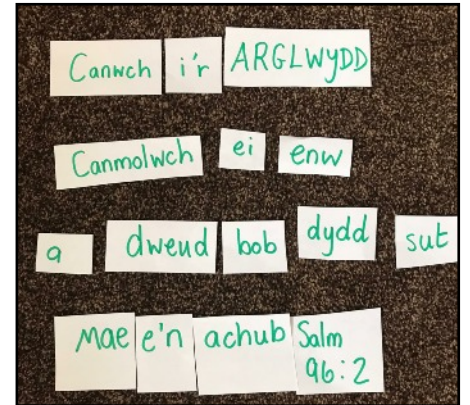 Canwch i'r ARGLWYDD
Canmolwch ei enw
a dweud bob dydd sut
Mae e'n achub Salm
96:2